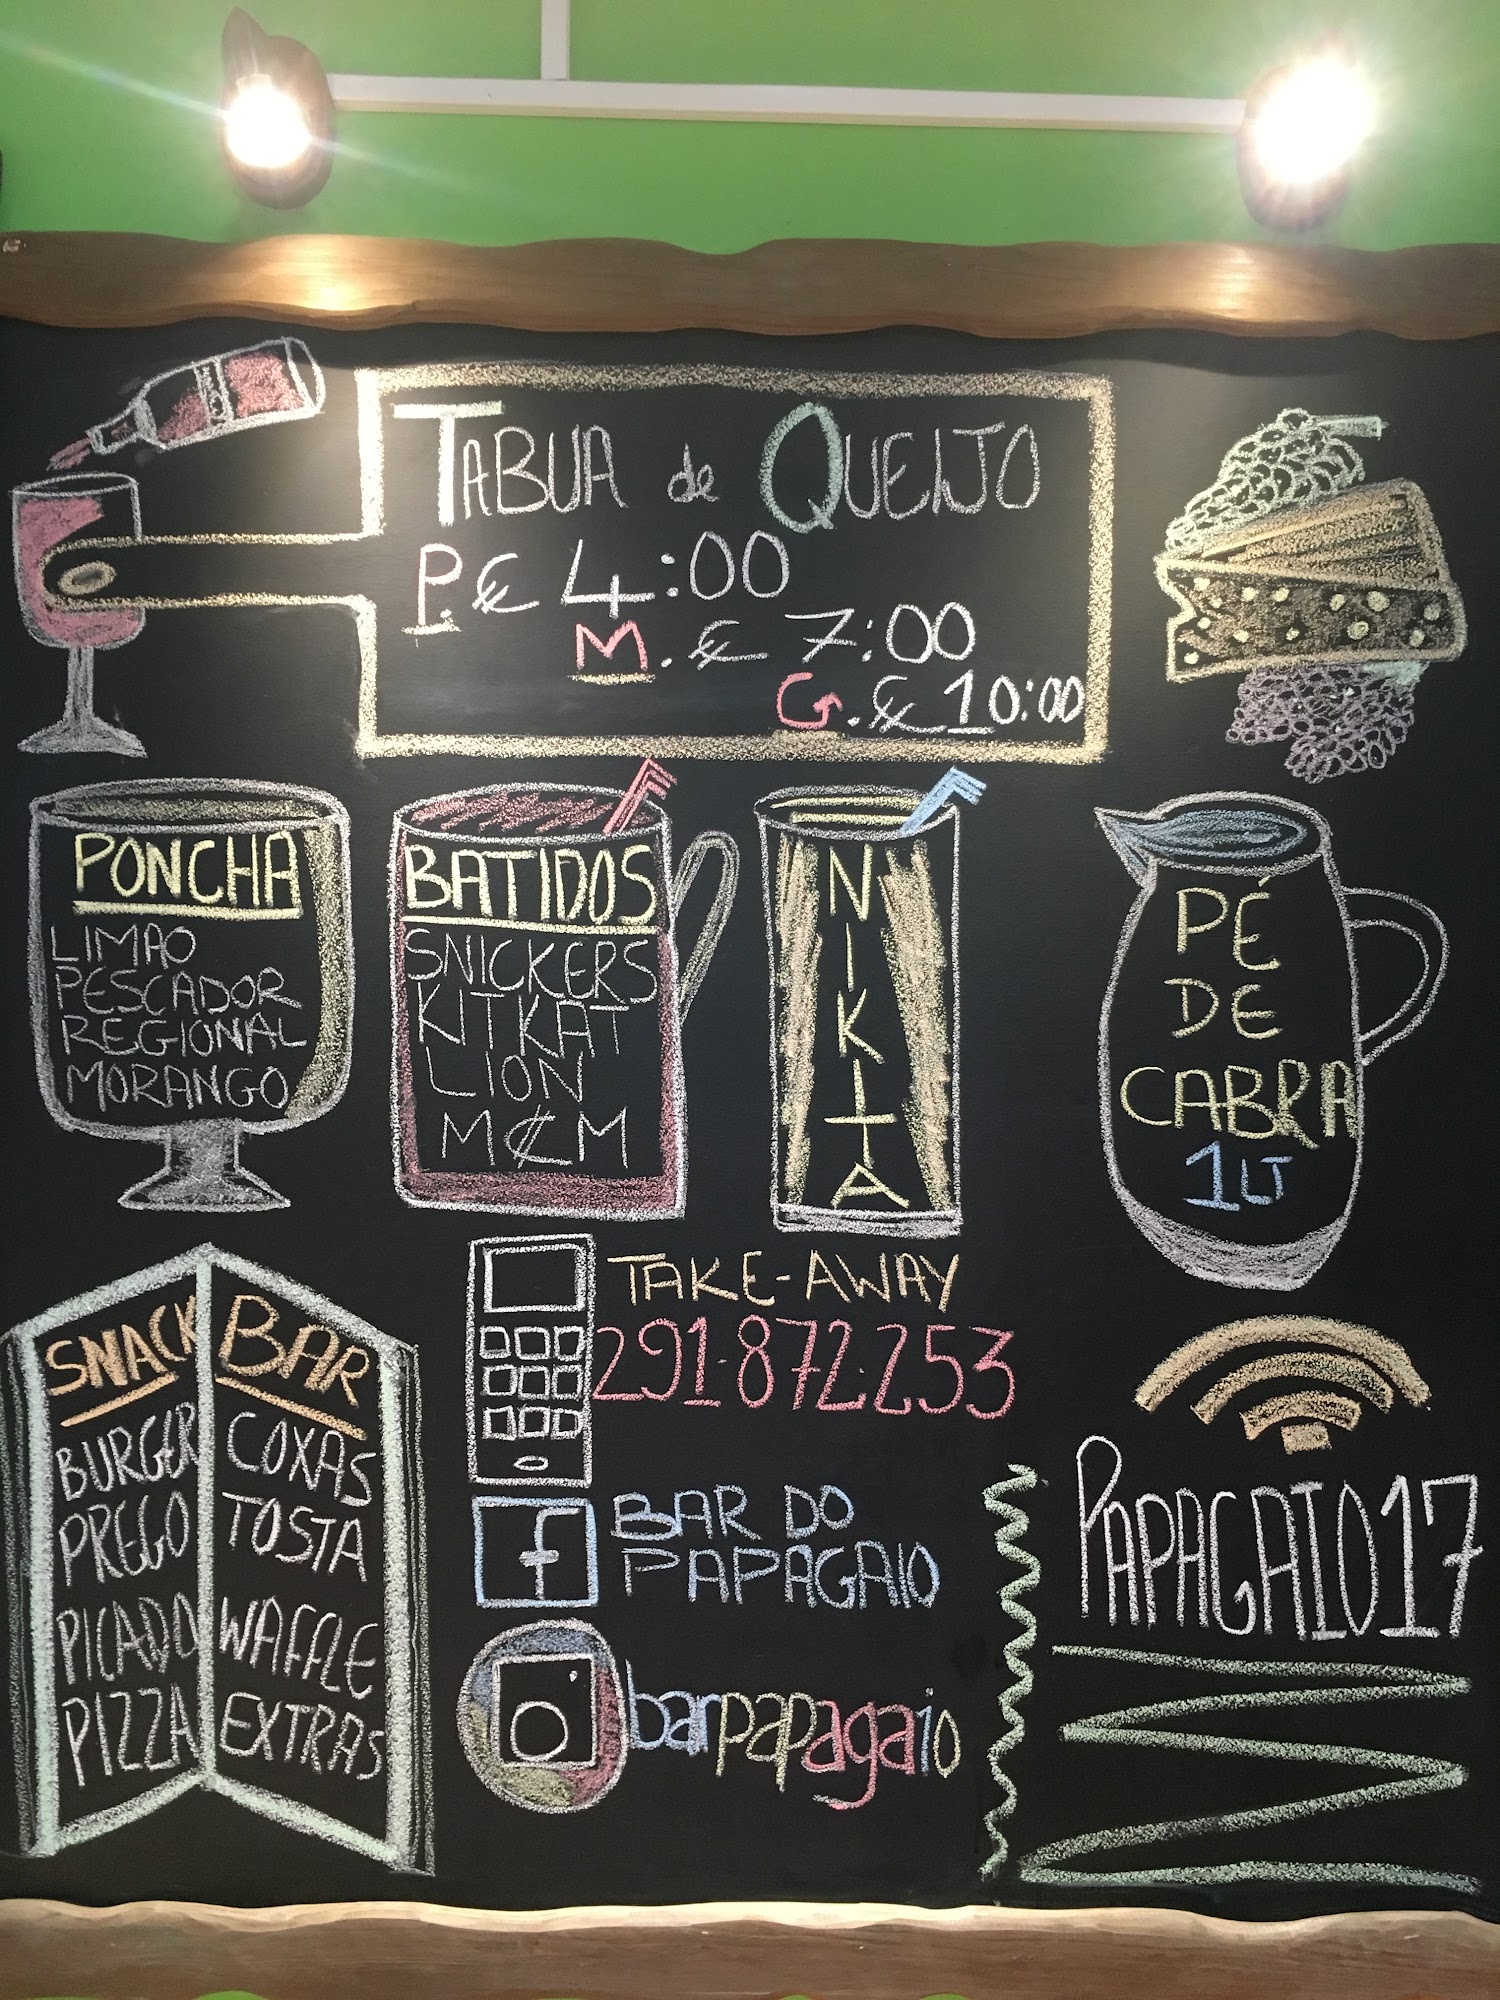 TABUA de QUEIJO
P. € 4:00
M. € 7:00
G. € 10:00
PONCHA
LIMAO
PESCADOR
REGIONAL
MORANGO
BATIDOS
SNICKERS
KITKAT
LION
M&M
NIKITA
PÉ
DE
CABRA
1LT
SNACK BAR
BURGER
PREGO
PICADO
PIZZA
COXAS
TOSTA
WAFFLE
EXTRAS
TAKE-AWAY
291.872.253
f BAR DO
PAPAGAIO
barpapagaio
PAPAGAIO17